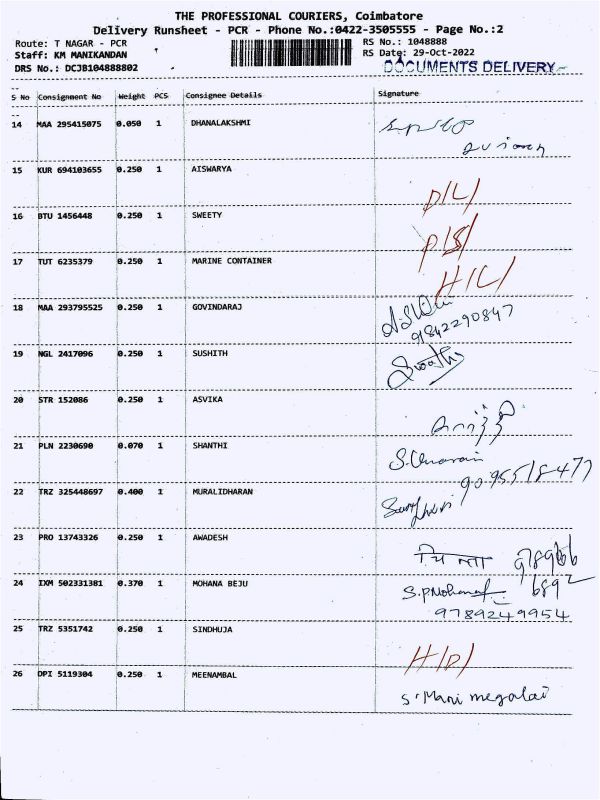 THE PROFESSIONAL COURIERS, Coimbatore
Delivery Runsheet - PCR - Phone No.:0422-3505555 - Page No.:2
Route: T NAGAR - PCR
Staff: KM MANIKANDAN
DRS No.: DCJB104888802
RS No.: 1048888
RS Date: 29-Oct-2022
DOCUMENTS DELIVERY
S No Consignment No Weight PCS Consignee Details Signature
14 MAA 295415075 0.050 1 DHANALAKSHMI
15 KUR 694103655 0.250 1 AISWARYA D/L/
16 BTU 1456448 0.250 1 SWEETY
17 TUT 6235379 0.250 1 MARINE CONTAINER H/L/
18 MAA 293795525 0.250 1 GOVINDARAJ
9842290847
19 NGL 2417096 0.250 1 SUSHITH Swathy
20 STR 152086 0.250 1 ASVIKA
21 PLN 2230690 0.070 1 SHANTHI
22 TRZ 325448697 0.400 1 MURALIDHARAN
23 PRO 13743326 0.250 1 AWADESH
24 IXM 502331381 0.370 1 MOHANA BEJU S.P.Mohana
9789249954
25 TRZ 5351742 0.250 1 SINDHUJA H/D/
26 DPI 5119304 0.250 1 MEENAMBAL S. Mani megalai